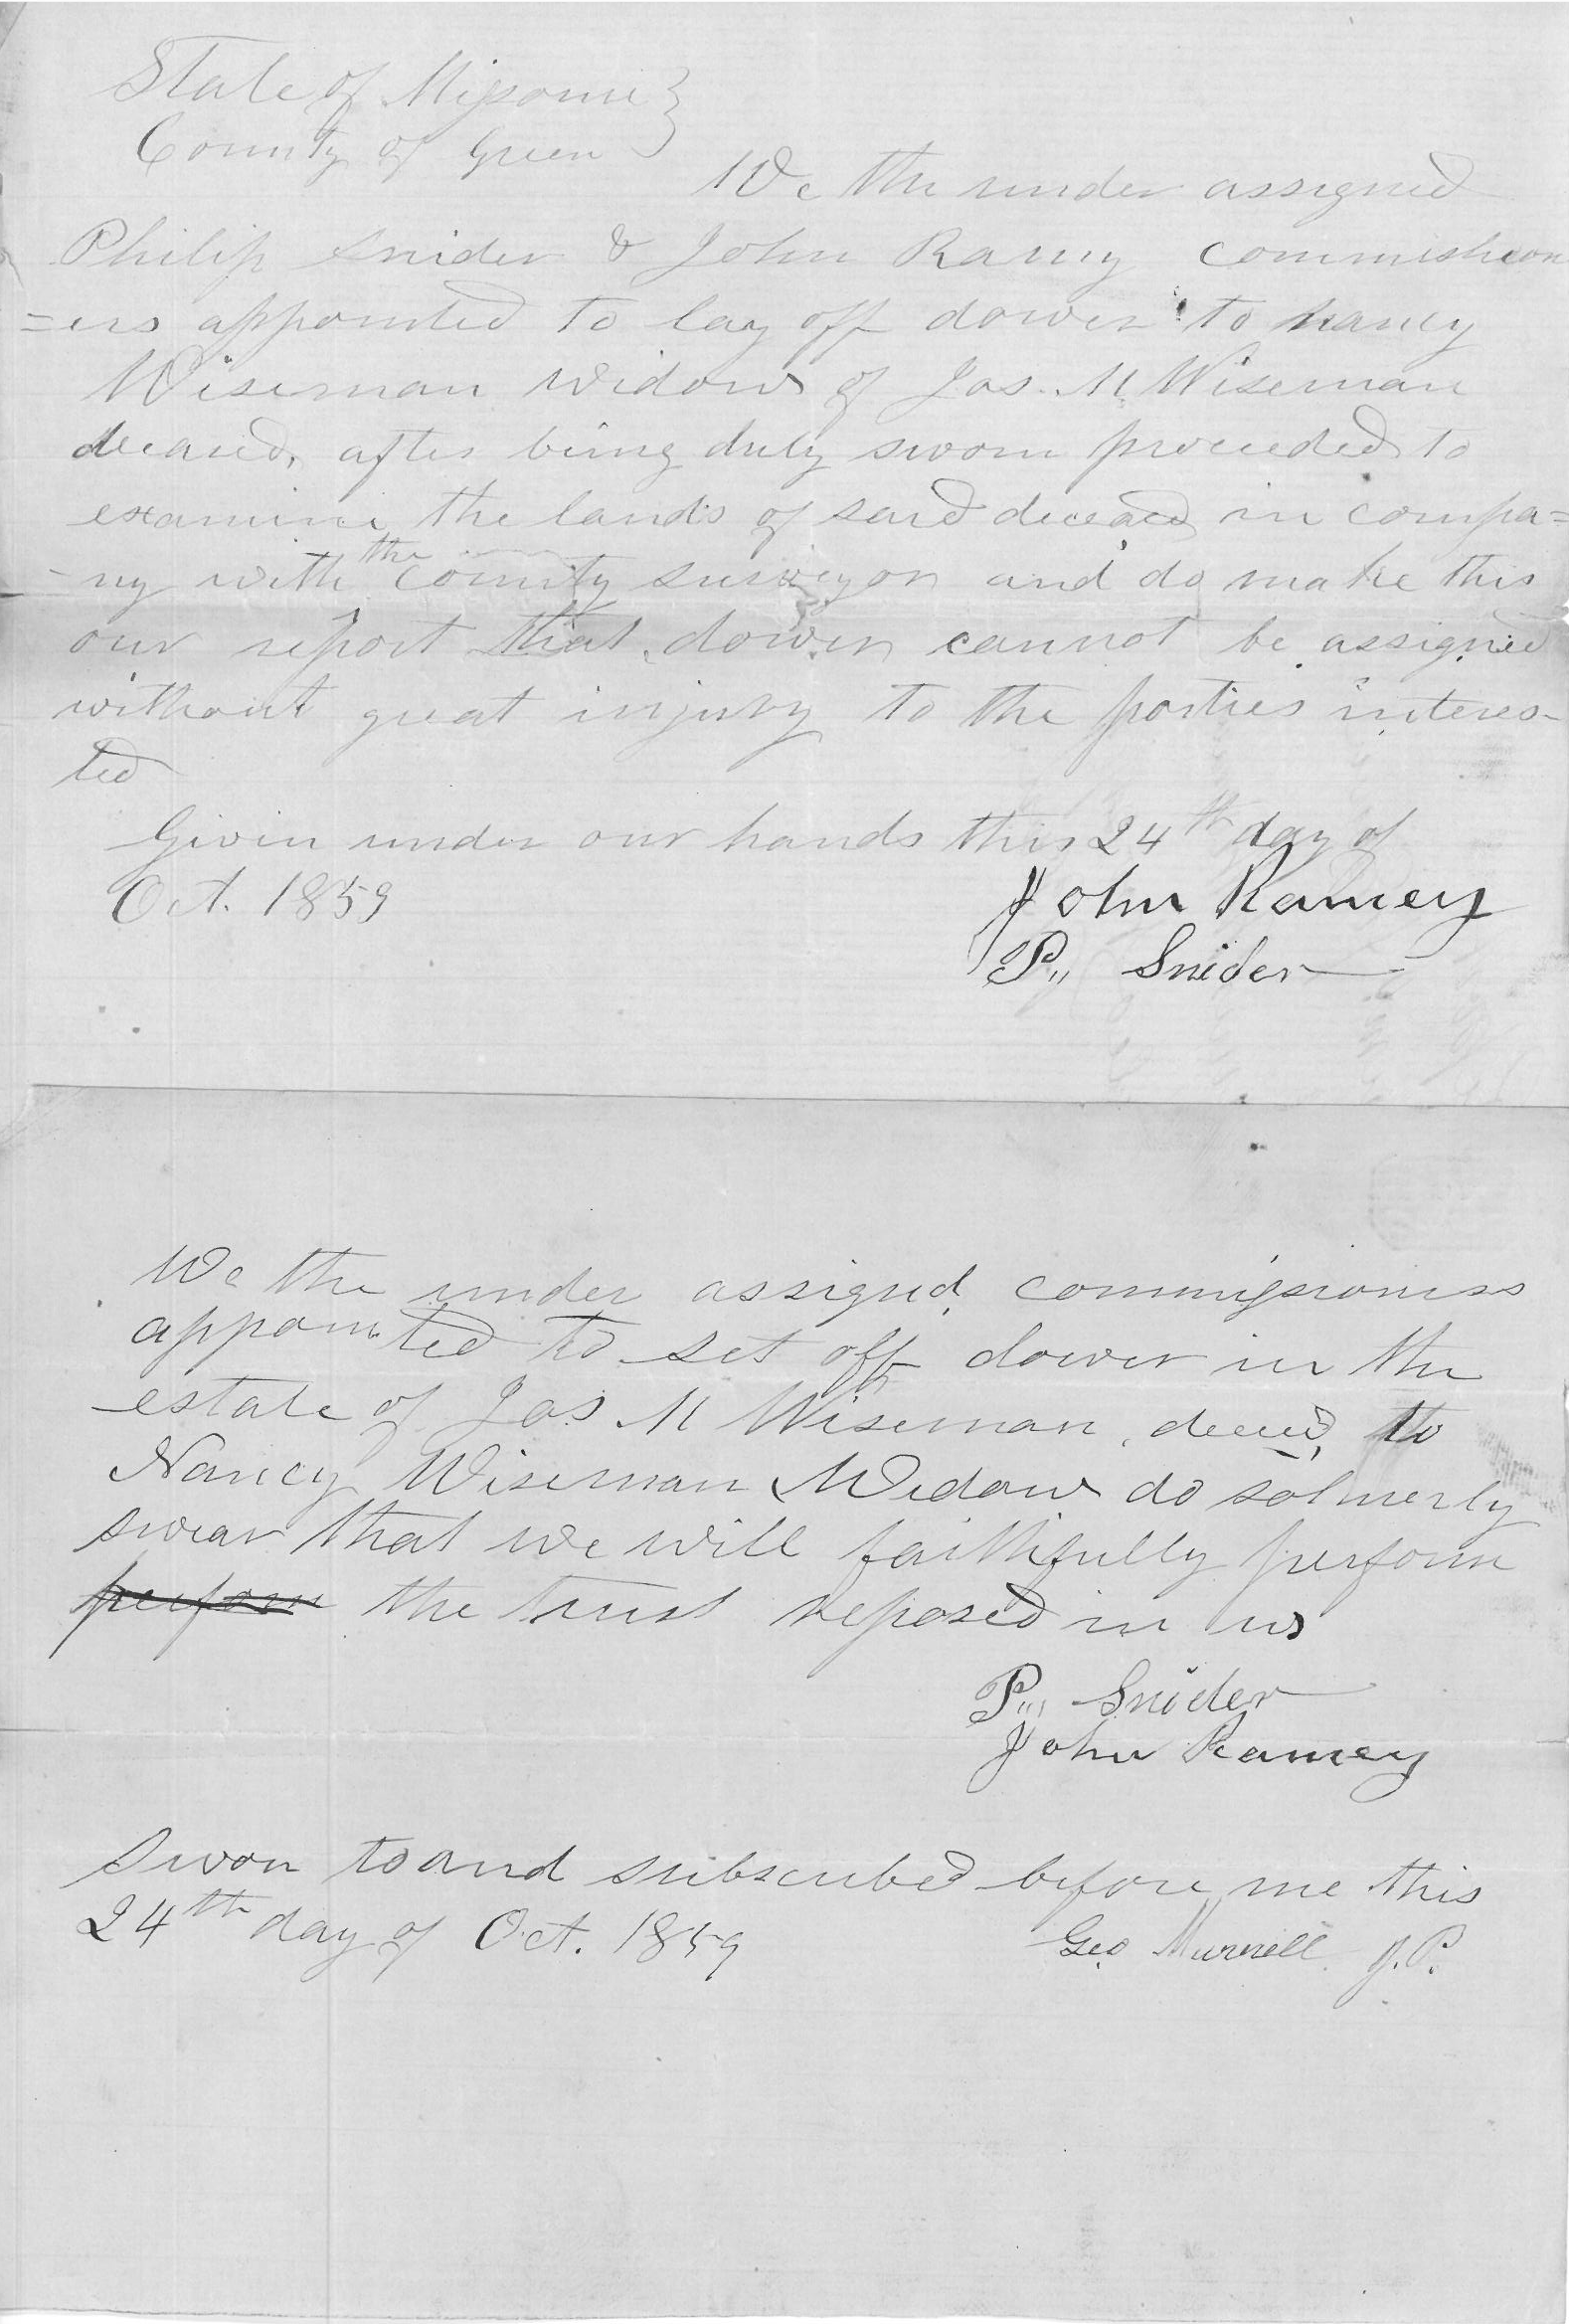 State of Missouri }
County of Green }
We the under assigned
Philip Snider & John Ramy commisheon
=ers appointed to lay off dower to nancy
Wiseman widow of Jas. M. Wiseman
deceased, after being duly sworn proceeded to
examine the lands of said deceased in compa=
-ny with the county surveyor and do make this
our report that dower cannot be assigned
without great injury to the parties interes-
ted
Givin under our hands this 24th day of
Oct. 1859
John Ramey
P,, Snider
We the under assigned commissioners
appointed to set off dower in the
estate of Jas M Wiseman, deced, to
Nancy Wiseman Widow do solmerly
swear that we will faithfully perform
perform the trust reposed in us
P,,, Snider
John Ramey
Sworn to and subscribed before me this
24th day of Oct. 1859
Geo Murrell J.P.